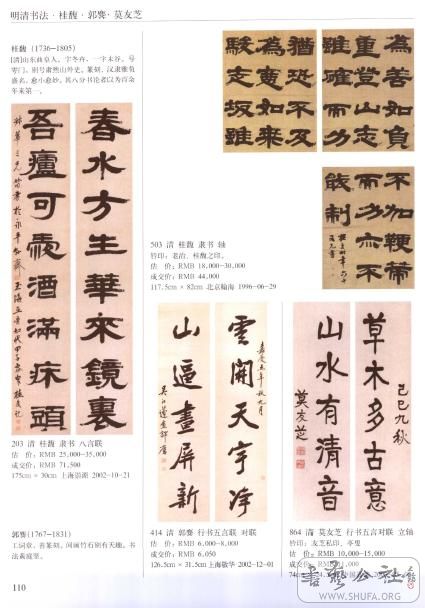 明清书法·桂馥·郭麐·莫友芝
桂馥（1736—1805）
[清]山东曲阜人，字冬卉，一字未谷，号
雩门，别号肃然山外史。篆刻、汉隶雅负
盛名，愈小愈妙，其八分书论者以为百余
年来第一。
春水方生华来镜裏
吾廬可爱酒满床頭
203 清 桂馥 隶书 八言联
估 价：RMB 25,000-35,000
成交价：RMB 71,500
175cm × 30cm 上海崇源 2002-10-21
郭麐(1767—1831)
工词章，善篆刻，间画竹石别有天趣，书
法黄庭坚。
110
為善如負
重登山志
雖確而力
猶恐不及
為惡如乘
駿走坂雖
不加鞭策
而力亦不
能制
503 清 桂馥 隶书 轴
钤印：老谷、桂馥之印。
估 价：RMB 18,000-30,000
成交价：RMB 44,000
117.5cm × 82cm 北京翰海 1996-06-29
雲開天宇淨
山逼畫屏新
414 清 郭麐 行书五言联 对联
估 价：RMB 6,000-8,000
成交价：RMB 6,050
126.5cm × 31.5cm 上海敬华 2002-12-01
己巳九秋
草木多古意
山水有清音
莫友芝
864 清 莫友芝 行书五言对联 立轴
钤印：友芝私印、亭叟
估 价：RMB 10,000-15,000
书艺公社
WWW.SHUFA.ORG